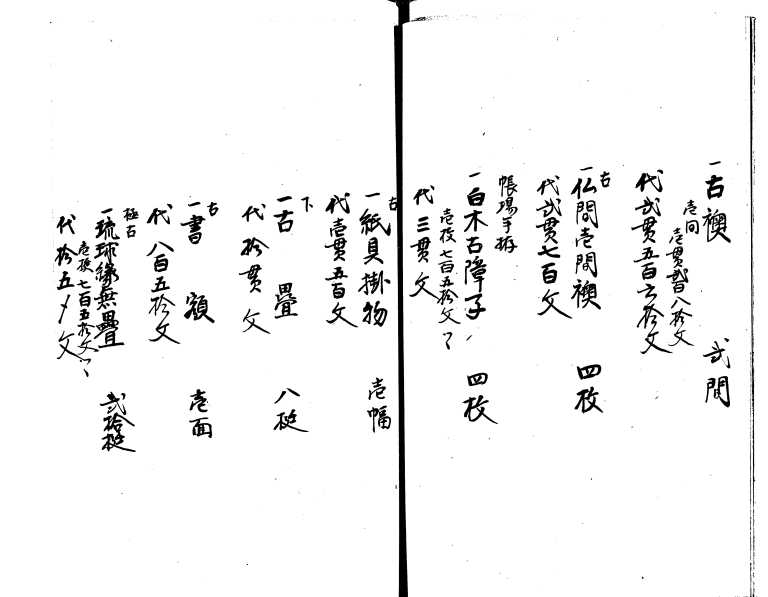 一古襖 弐間
壱間
壱貫弐百八拾文
代弐貫五百六拾文
古
一仏間壱間襖 四枚
代弐貫七百文
帳場手摺
一白木古障子 四枚
壱枚七百五拾文
代三貫文
古
一紙具掛物 壱幅
代壱貫五百文
下
一古畳 八挺
代拾貫文
古
一書額 壱面
代八百五拾文
極古
一琉球縁無畳 弐拾挺
壱挺七百五拾文
代拾五〆文